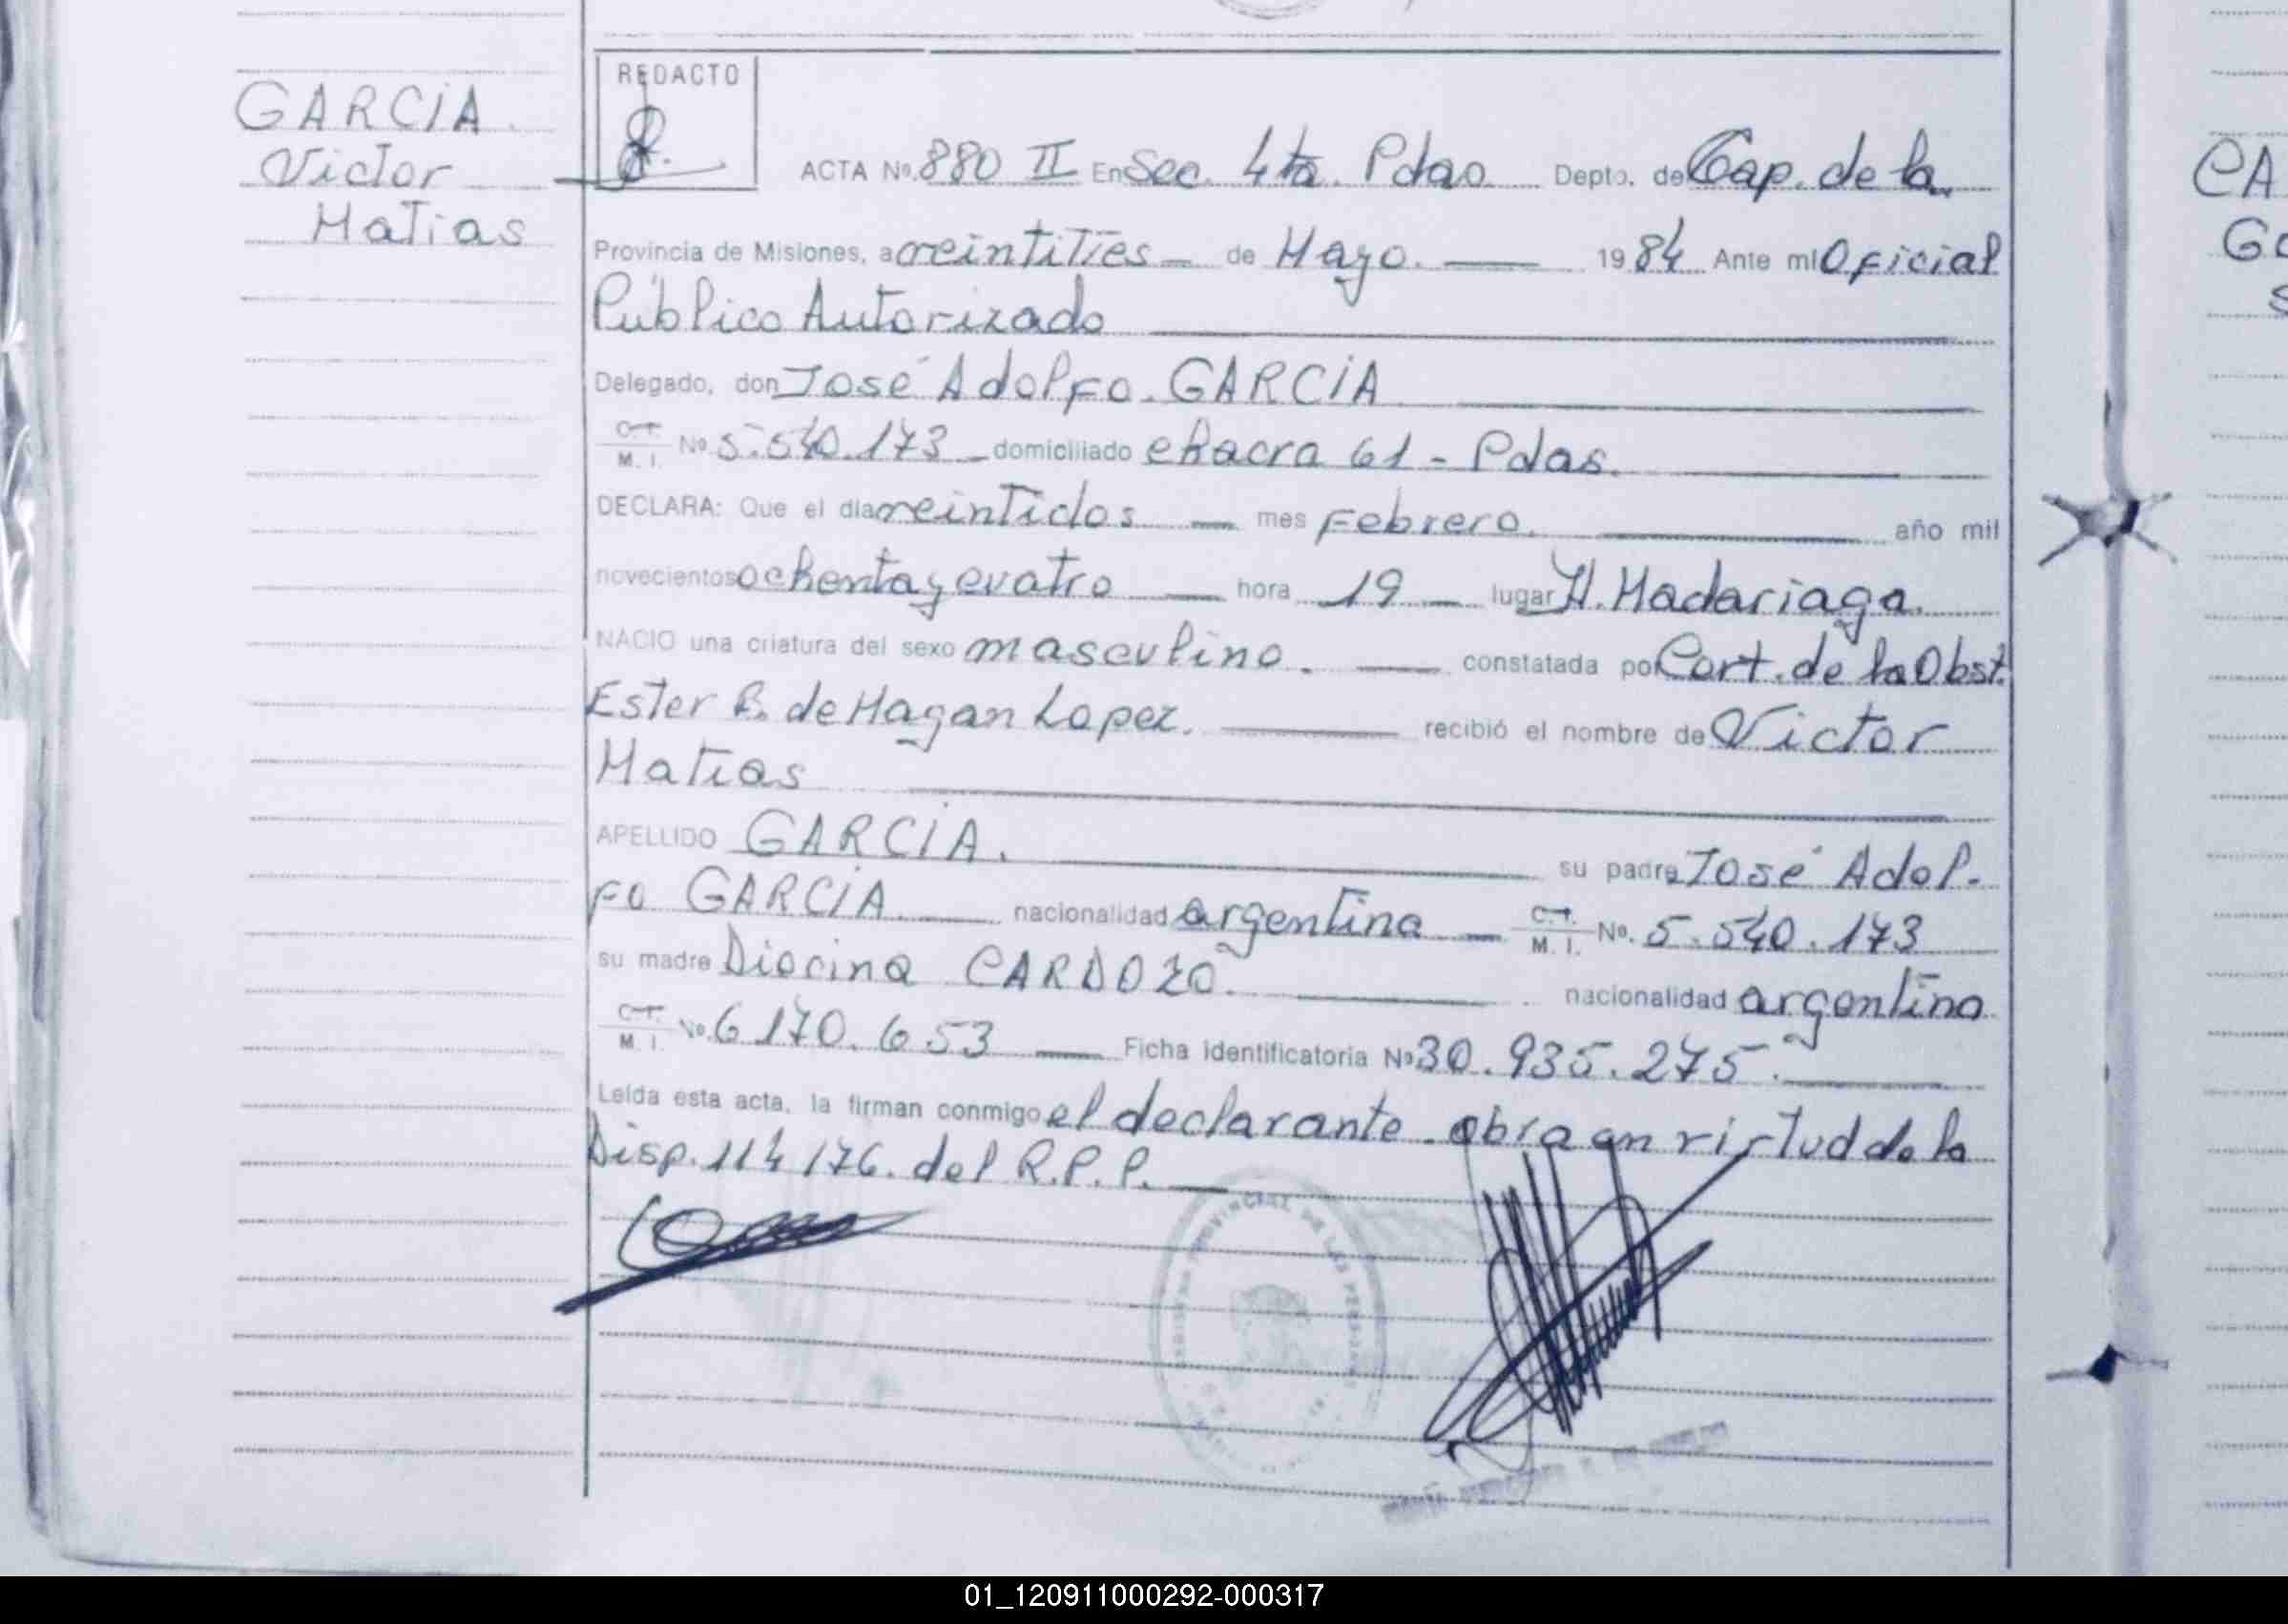 GARCIA
Victor
Matias
REDACTO
ACTA Nº. 880 II En Sec. 4ta. Pdas Depto. de Cap. de la
Provincia de Misiones, a veintitres de Mayo. 1984 Ante mí Oficial
Público Autorizado
Delegado, don José Adolfo. GARCIA
C.I. M. I. Nº 5.540.173 domiciliado chacra 61 - Pdas.
DECLARA: Que el día veintidos mes Febrero. año mil
novecientos ochenta y cuatro hora 19 lugar H. Madariaga.
NACIO una criatura del sexo masculino. constatada por Cert. de la Obst.
Ester B. de Magan Lopez. recibió el nombre de Victor
Matias
APELLIDO GARCIA. su padre José Adol-
fo GARCIA nacionalidad argentina C.I. M. I. Nº. 5.540.173
su madre Diocina CARDOZO. nacionalidad argentina
C.I. M. I. Nº. 6.170.653 Ficha identificatoria Nº 30.935.275.
Leída esta acta, la firman conmigo el declarante. obra en virtud de la
Disp. 114/76. del R.P.P.
PROVINCIAL DE LAS PERSONAS
CA
GO
S
01_120911000292-000317